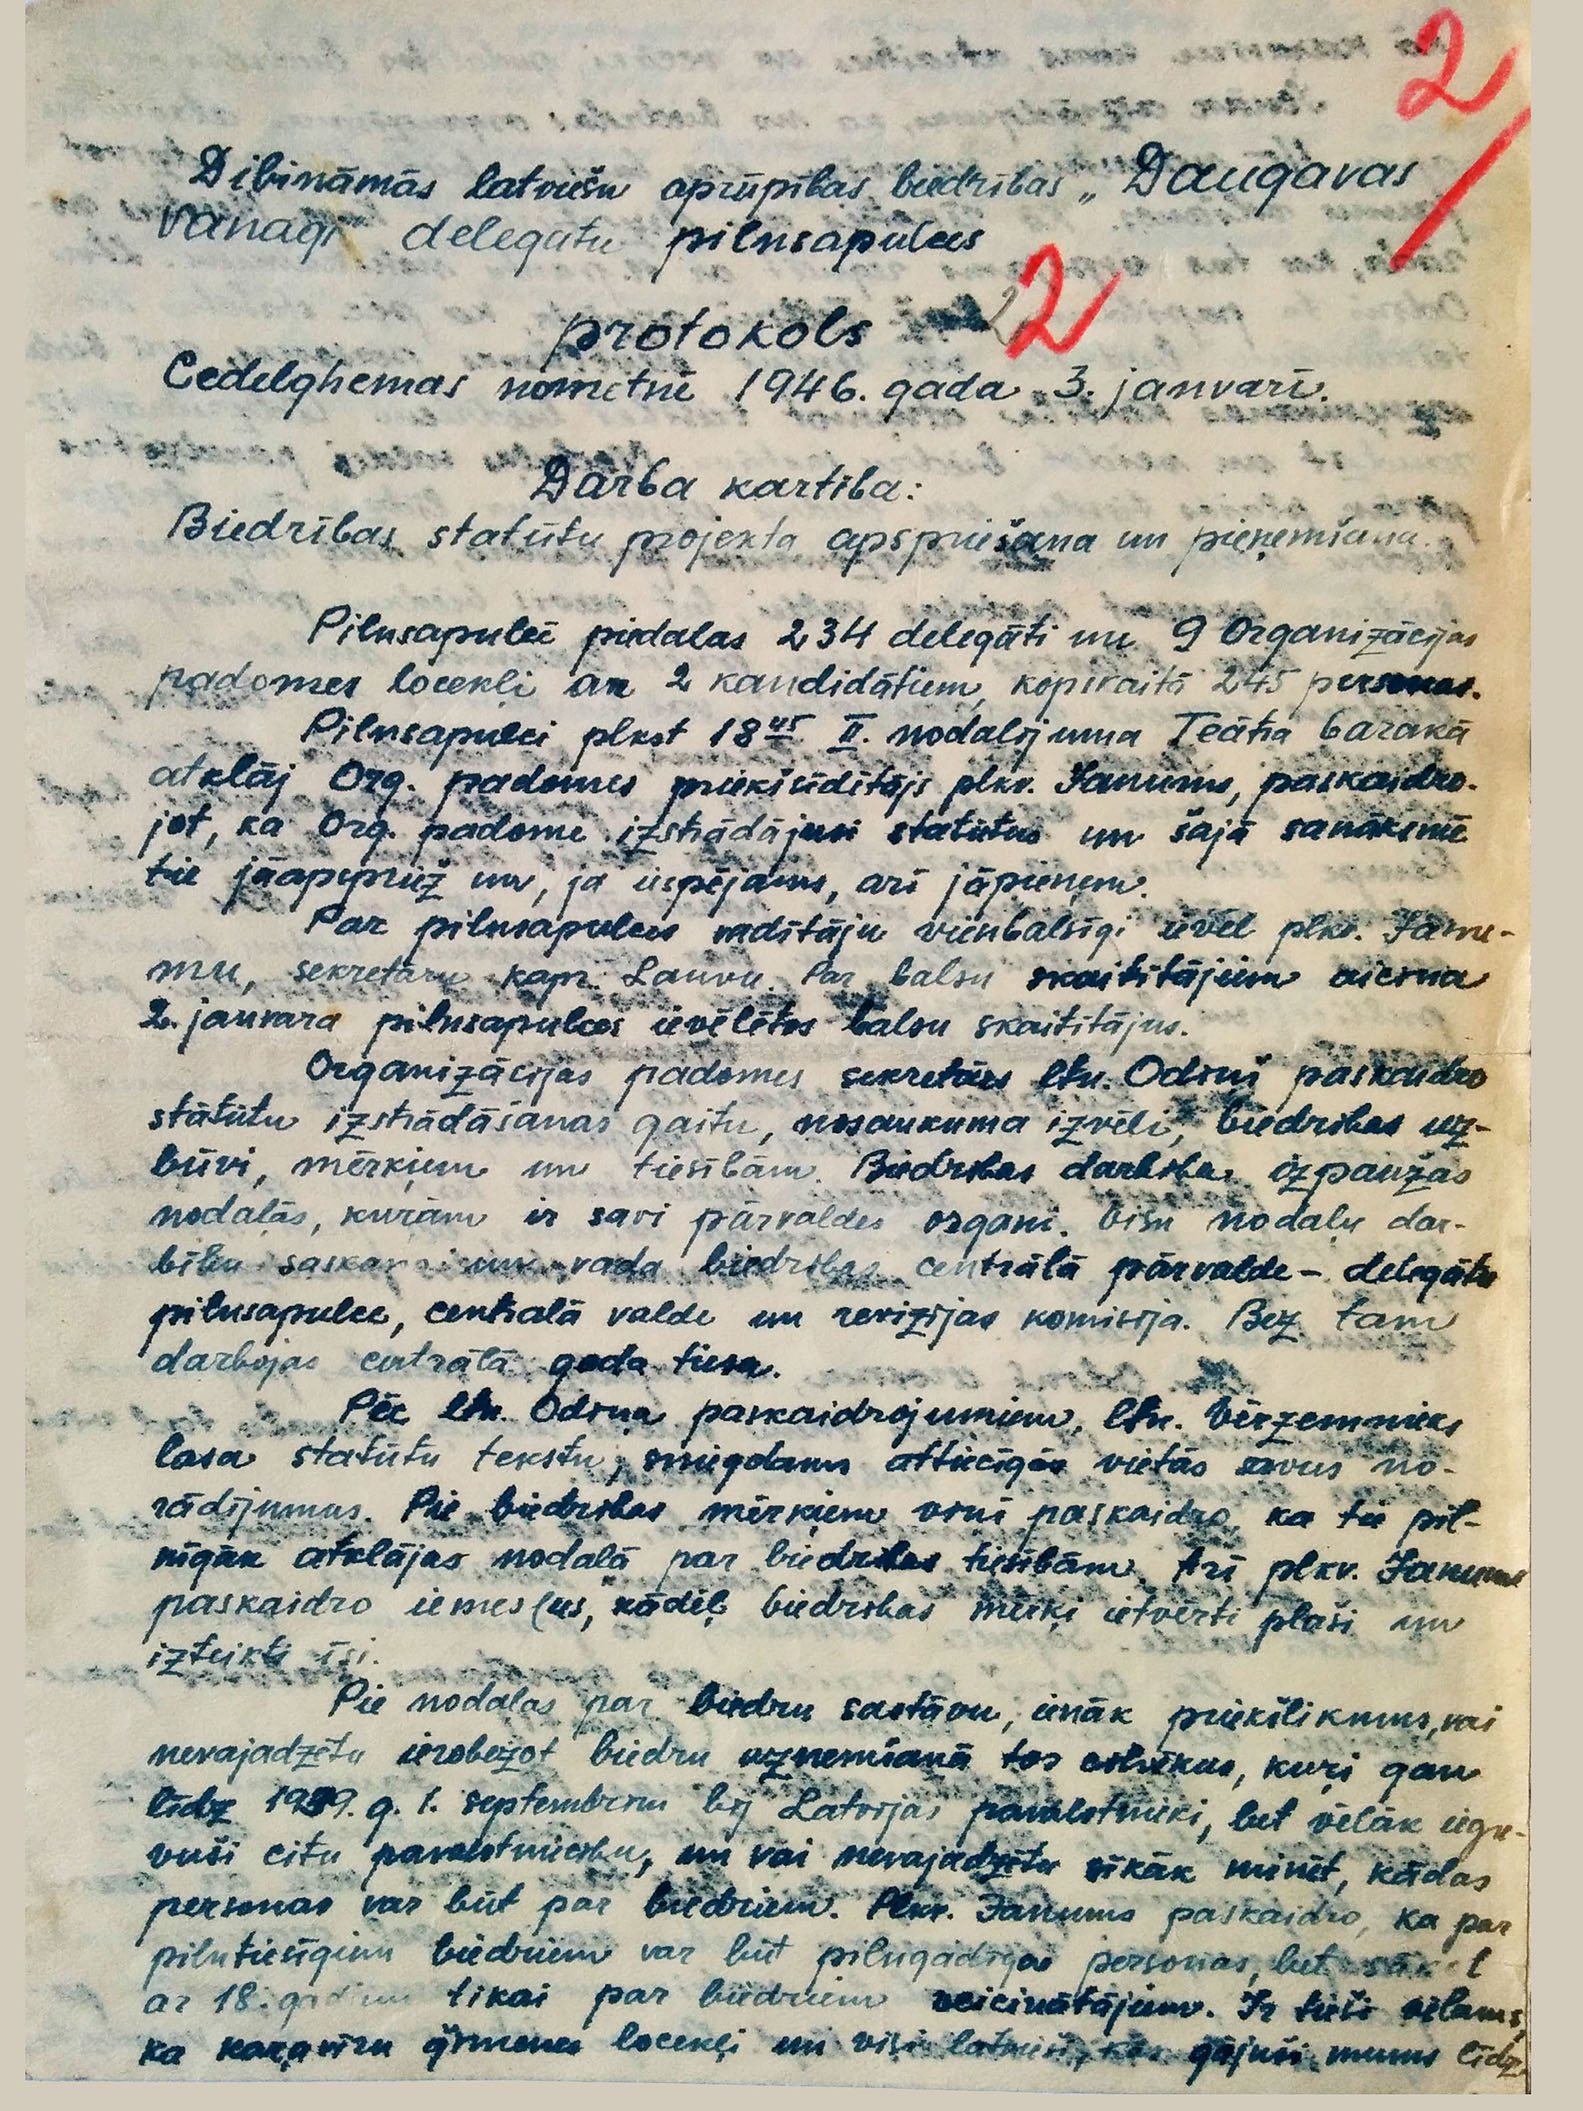 2
Dibināmās latviešu aprūpības biedrības „Daugavas
vanagi" delegātu pilnsapulces
protokols 2 2
Cedelghemas nometnē 1946. gada 3. janvarī.
Darba kartība:
Biedrības statūtu projekta apspriešana un pieņemšana.
Pilnsapulcē piedalas 234 delegāti un 9 Organizācijas
padomes locekļi ar 2 kandidātiem, kopskaitā 245 personas.
Pilnsapulci plkst 18 45 II. nodalījuma Teātra barakā
atklāj Org. padomes priekšsēdētājs plkv. Janums, paskaidro-
jot, ka Org. padome izstrādājusi statūtus un šajā sanāksmē
tie jāapspriež un, ja iespējams, arī jāpieņem.
Par pilnsapulces vadītāju vienbalsīgi ievēl plkv. Janu-
mu, sekretāru kapt. Lauvu. Par balsu skaitītājiem aicina
2. janvara pilnsapulces ievēlētos balsu skaitītājus.
Organizācijas padomes sekretārs ltn. Odiņš paskaidro
stātūtu izstrādāšanas gaitu, nosaukuma izvēli, biedrības uz-
būvi, mērķiem un tiesībām. Biedrības darbība izpaužas
nodaļās, kurām ir savi pārvaldes organi. Visu nodaļu dar-
bību un vada biedrības centrālā pārvalde – delegātu
pilnsapulce, centralā valde un revizijas komisija. Bez tam
darbojas centrālā goda tiesa.
Pēc ltn. Odiņa paskaidrojumiem, ltn. Vērzemnieks
lasa statūtu tekstu, sniegdams attiecīgās vietās savus no-
rādījumus. Pie biedrības mērķiem viņš paskaidro, ka tie pil-
nīgāk atklājas nodaļā par biedrības tiesībām. Arī plkv. Janums
paskaidro iemeslus, kādēļ biedrības mērķi ietverti plaši un
izteikti īsi.
Pie nodaļas par biedru sastāvu, ienāk priekšlikums, vai
nevajadzētu ierobežot biedru uzņemšanā tos cilvēkus, kuŗi gan
līdz 1939. g. 1. septembrim bij Latvijas pavalstnieki, bet vēlāk iegu-
vuši citu pavalstniecību, un vai nevajadzētu sīkāk minēt, kādas
personas var būt par biedriem. Plkv. Janums paskaidro, ka par
pilntiesīgiem biedriem var būt pilngadīgas personas, bet sākot
ar 18. gadiem tikai par biedriem veicinātājiem. Ir tieši vēlams,
ka kaŗavīru ģimenes locekļi un visi latvieši, kas gājuši mums līdz,